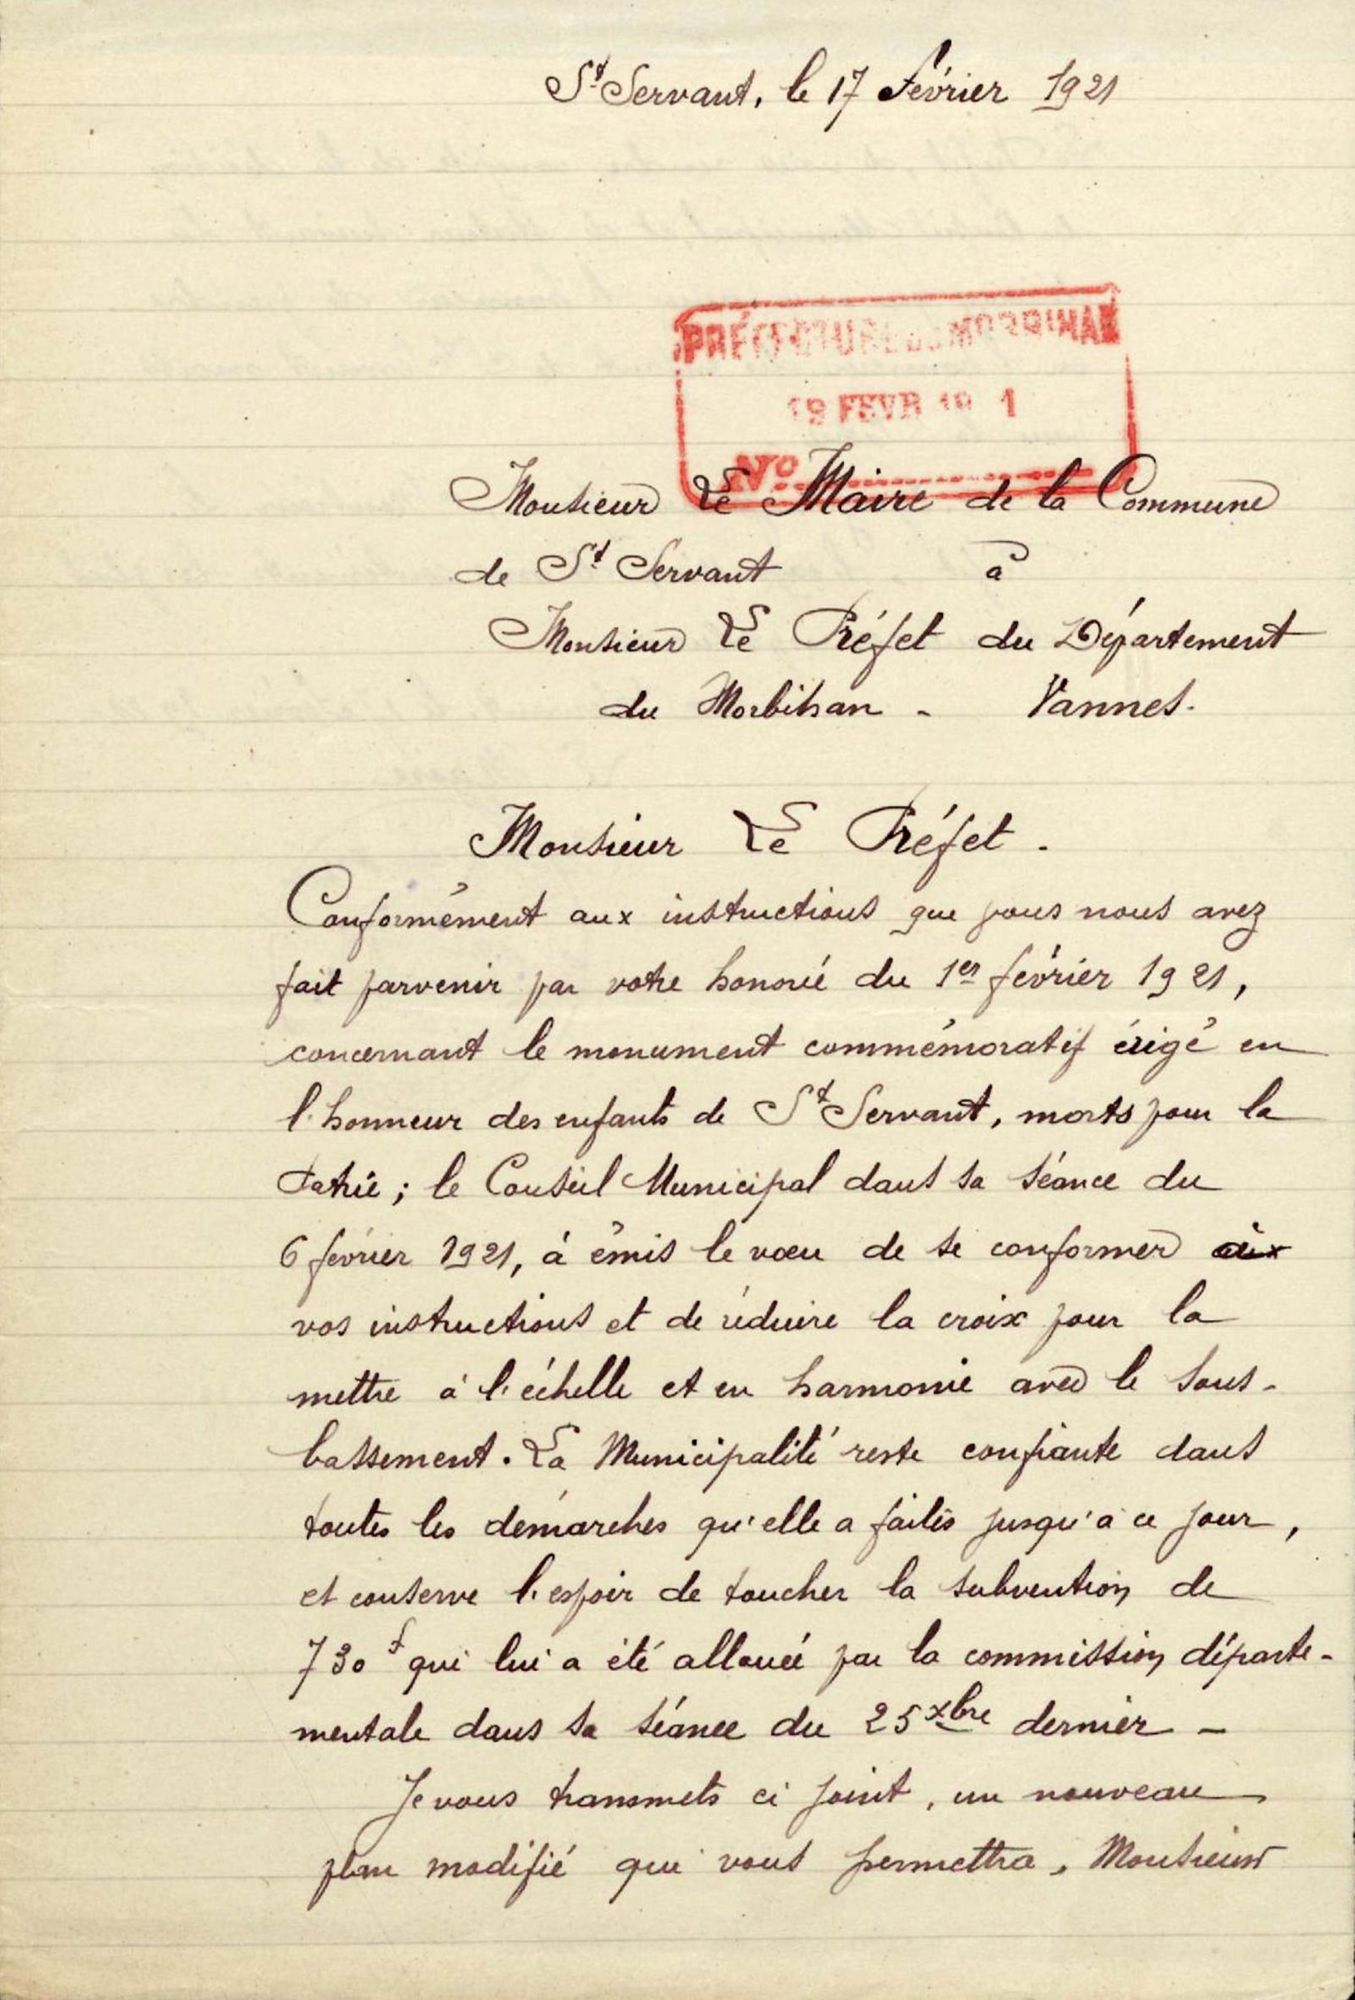 St Servant, le 17 Février 1921
PRÉFECTURE DU MORBIHAN
FEVR 1921
No
Monsieur Le Maire de la Commune
de St Servant à
Monsieur Le Préfet du Département
du Morbihan - Vannes.
Monsieur Le Préfet.
Conformément aux instructions que vous nous avez
fait parvenir par votre honoré du 1er février 1921,
concernant le monument commémoratif érigé en
l'honneur des enfants de St Servant, morts pour la
Patrie; le Conseil Municipal dans sa séance du
6 février 1921, à émis le vœu de se conformer aux
vos instructions et de réduire la croix pour la
mettre à l'échelle et en harmonie avec le sous-
bassement. La Municipalité reste confiante dans
toutes les démarches qu'elle a faites jusqu'à ce jour,
et conserve l'espoir de toucher la subvention de
730f qui lui a été allouée par la commission départe-
mentale dans sa séance du 25 xbre dernier -
Je vous transmets ci joint, un nouveau
plan modifié qui vous permettra, Monsieur